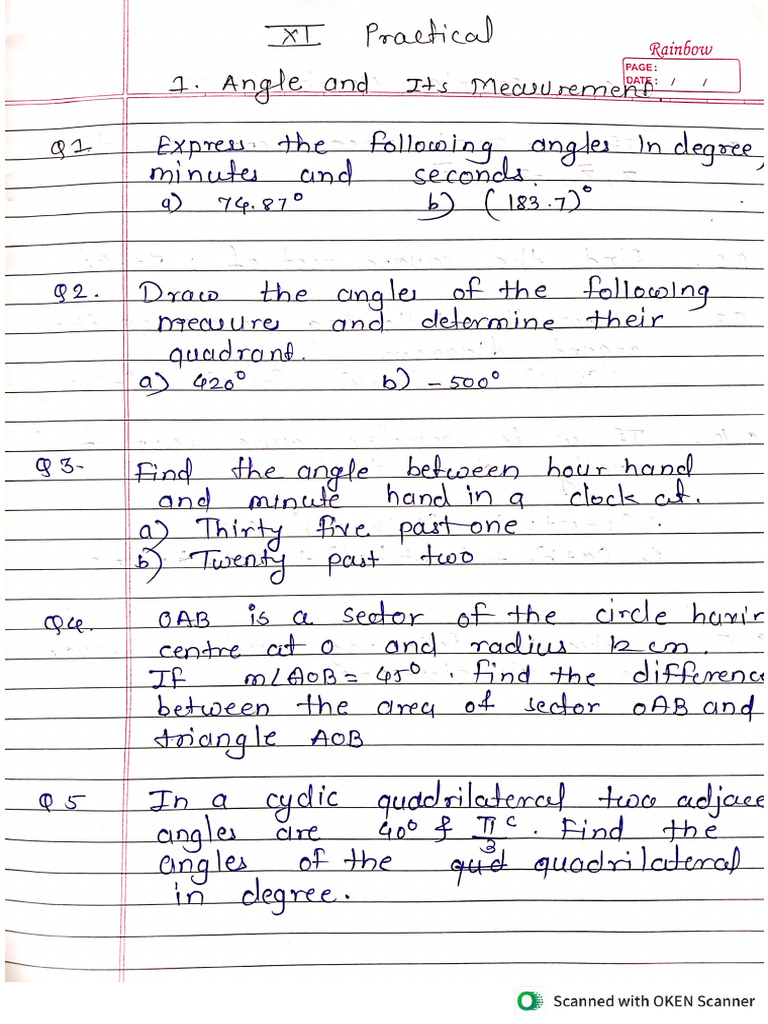 XI Practical
Rainbow
PAGE:
DATE: / /
1. Angle and Its Measurement.
Q1 Express the following angles In degree,
minutes and seconds.
a) 74.87° b) (183.7)°
Q2. Draw the angles of the following
measures and determine their
quadrant.
a) 420° b) -500°
Q3- Find the angle between hour hand
and minute hand in a clock at.
a) Thirty five past one
b) Twenty past two
Q4. OAB is a sector of the circle havin
centre at O and radius 12 cm.
If m∠AOB = 45°. find the differenc
between the area of sector OAB and
triangle AOB
Q5 In a cyclic quadrilateral two adjace
angles are 40° & π/3 ᶜ. Find the
angles of the qud quadrilateral
in degree.
Scanned with OKEN Scanner